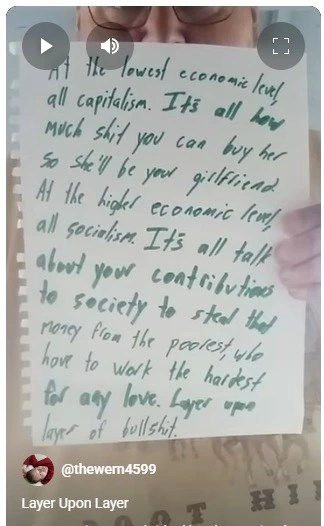 At the lowest economic level,
all capitalism. It's all how
much shit you can buy her
so she'll be your girlfriend.
At the higher economic level,
all socialism. It's all talk
about your contributions
to society to steal that
money from the poorest, who
have to work the hardest
for any love. Layer upon
layer of bullshit.
@thewern4599
Layer Upon Layer